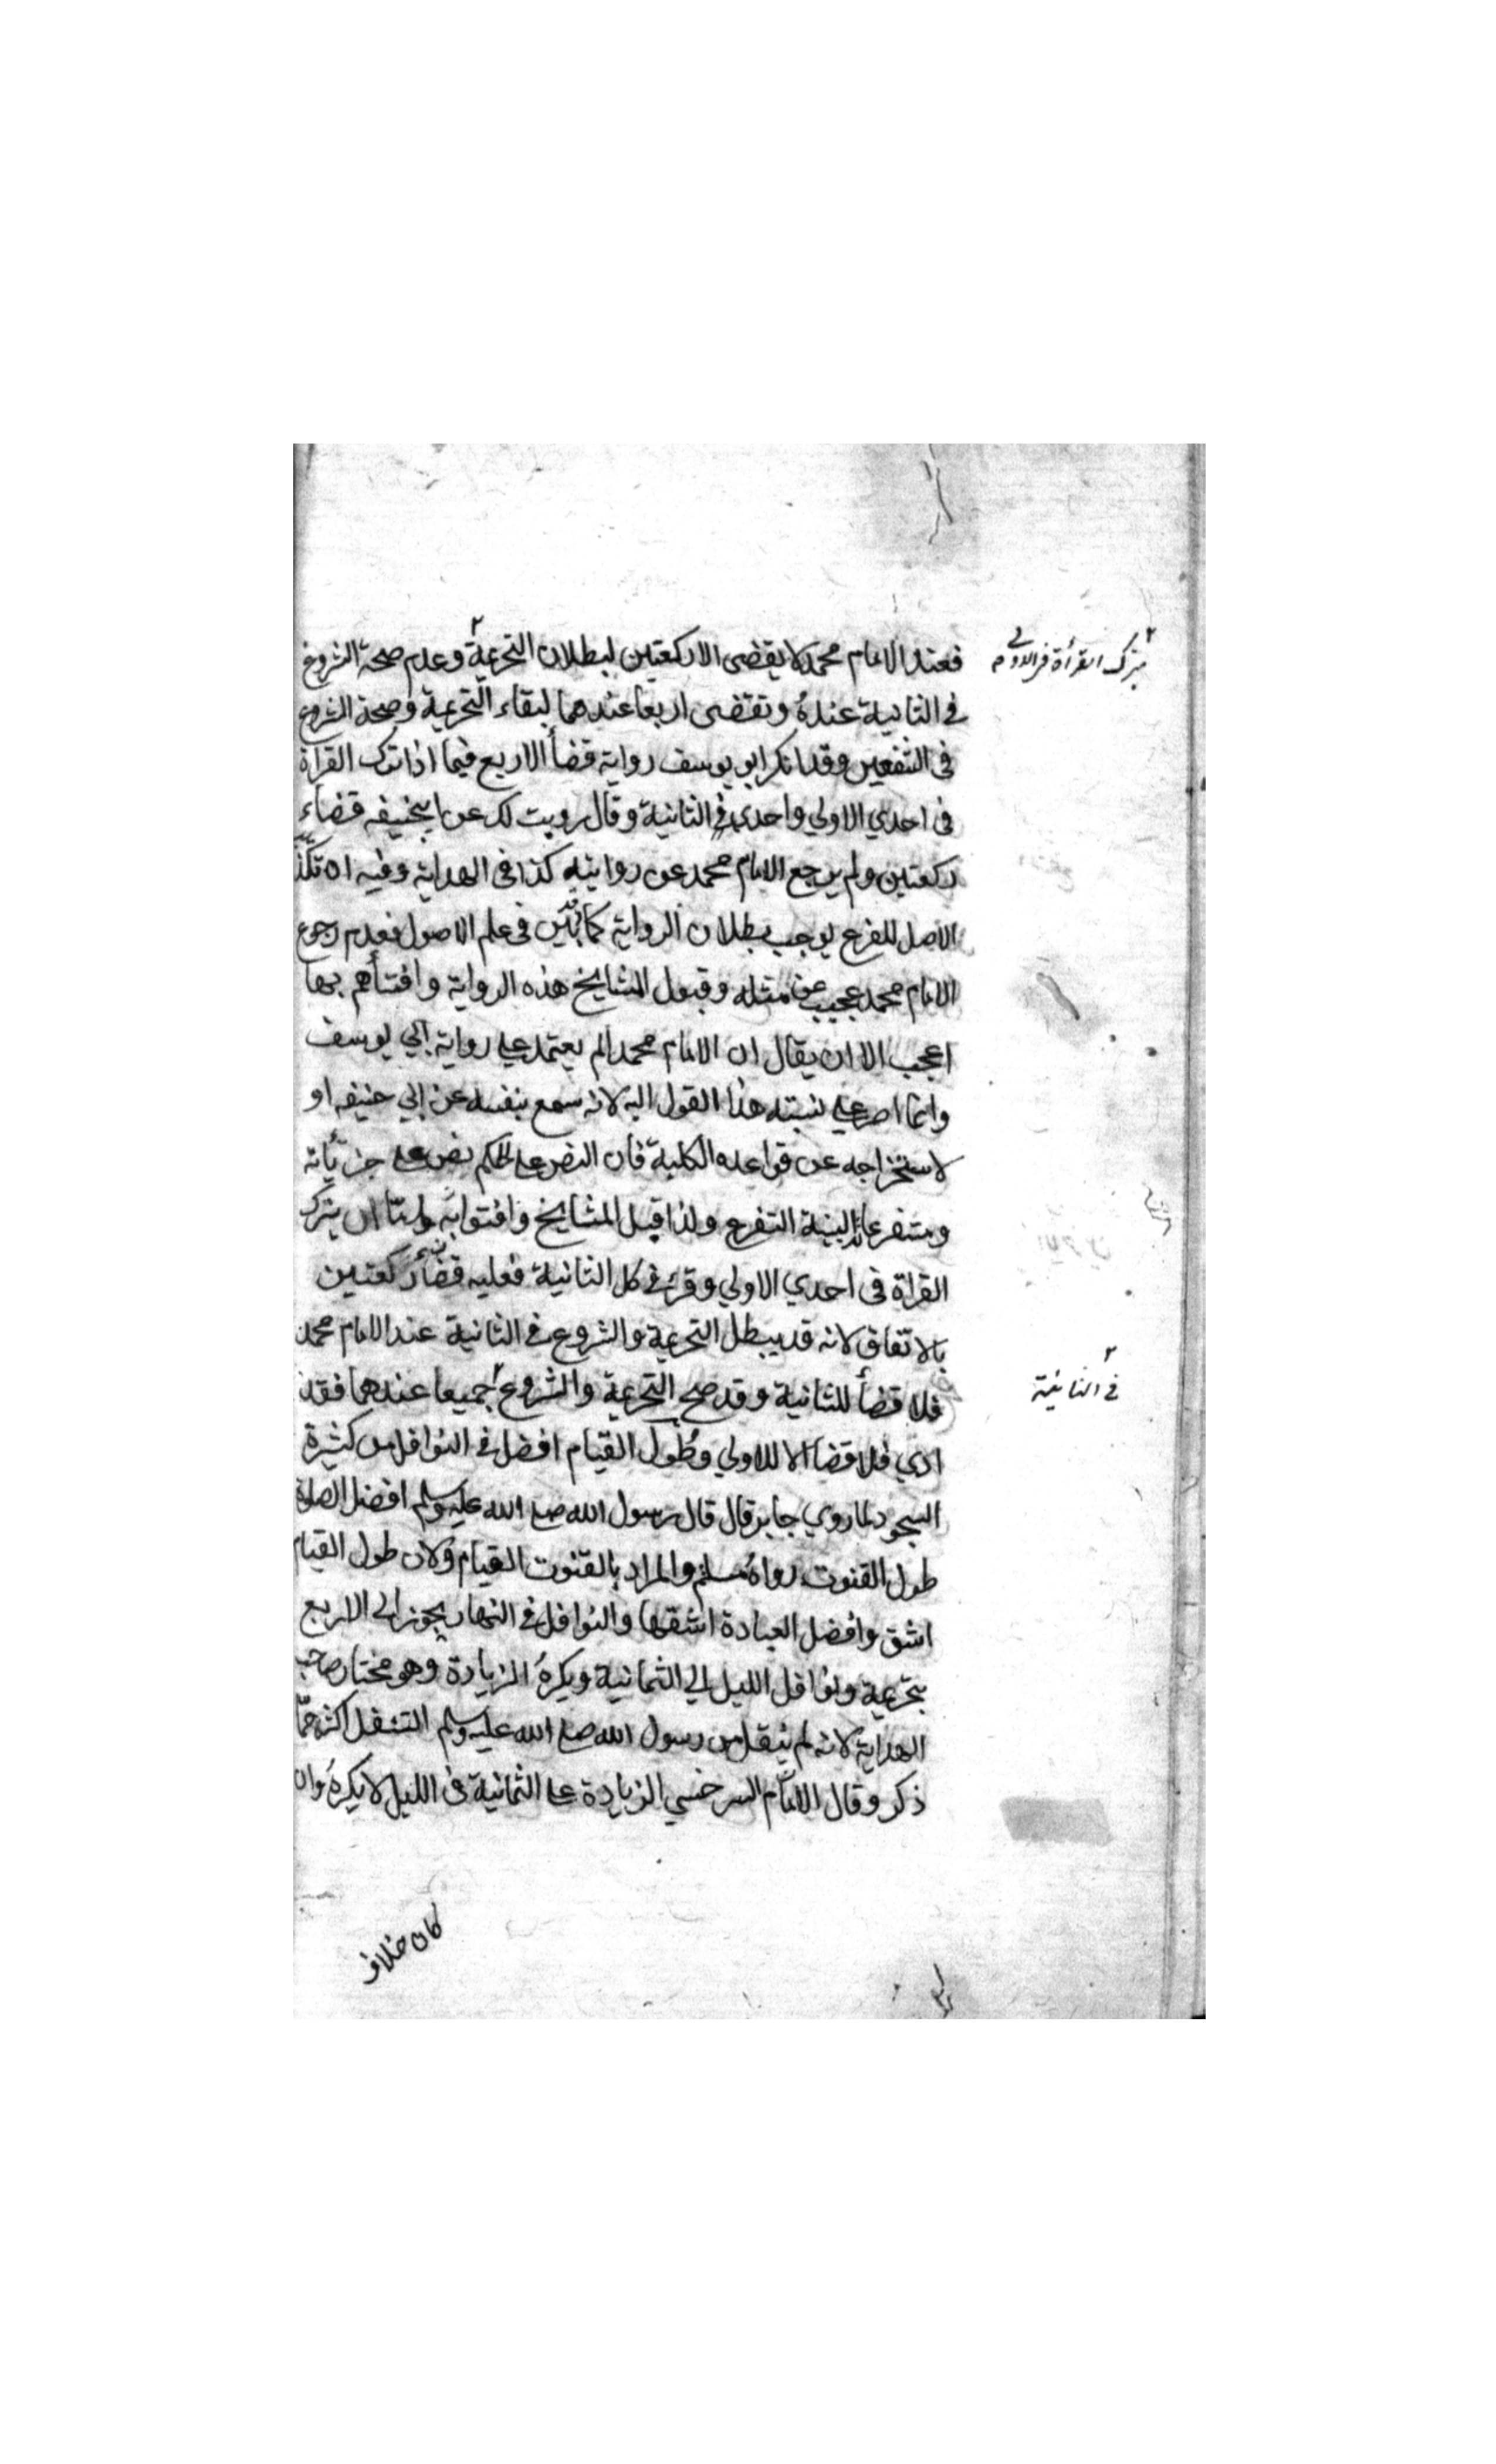 بترك القرأة فى الاولى
فعند الامام محمد لا يقضى الا ركعتين لبطلان التحريمة وعدم صحة الشروع
فى الثانية عنده وتقضى اربعا عندهما لبقاء التحريمة وصحة الشروع
فى الشفعين وقد انكر ابو يوسف رواية قضأ الاربع فيما اذا ترك القراة
فى احدي الاولي واحدي فى الثانية وقال رويت لك عن ابيحنيفه قضاء
ركعتين ولم يرجع الامام محمد عن روايته كذا فى الهداية وفيه ان تكذيب
الاصل للفرع يوجب بطلان الرواية كما بين فى علم الاصول فعدم رجوع
الامام محمد عجيب عن مثله وقبول المشايخ هذه الرواية وافتأهم بها
اعجب الا ان يقال ان الامام محمد الم يعتمد علي رواية ابي يوسف
وانما اصر علي نسبته هذا القول اليه لانه سمع بنفسه عن ابي حنيفه او
لاستخراجه عن قواعده الكلية فان النص علي الحكم نص علي جزئياته
ومتفرعاته البينة التفرع ولذا قبل المشايخ وافتوا به واما ان يترك
القراة فى احدي الاولي وقرئ فى كل الثانية فعليه قضأ ركعتين
بالاتفاق لانه قد يبطل التحريمة والشروع فى الثانية عند الامام محمد
فلا قضأ للثانية وقد صح التحريمة والشروع جميعا عندهما فقد
فى الثانية
ادي فلا قضا الا للاولي وطول القيام افضل فى النوافل من كثيرة
السجود لما روي جابر قال قال رسول الله صلع الله عليه وسلم افضل الصلوة
طول القنوت رواه مسلم والمراد بالقنوت القيام ولان طول القيام
اشق وافضل العبادة اشقها والنوافل فى النهار يجوز الى الاربع
بتحريمة ونوافل الليل الي الثمانية ويكره الزيادة وهو مختار صاحب
الهداية لانه لم ينقل من رسول الله صلع الله عليه وسلم التنفل اكثر مما
ذكر وقال الامام السرخسي الزيادة علي الثمانية فى الليل لا يكره وان
كان خلاف